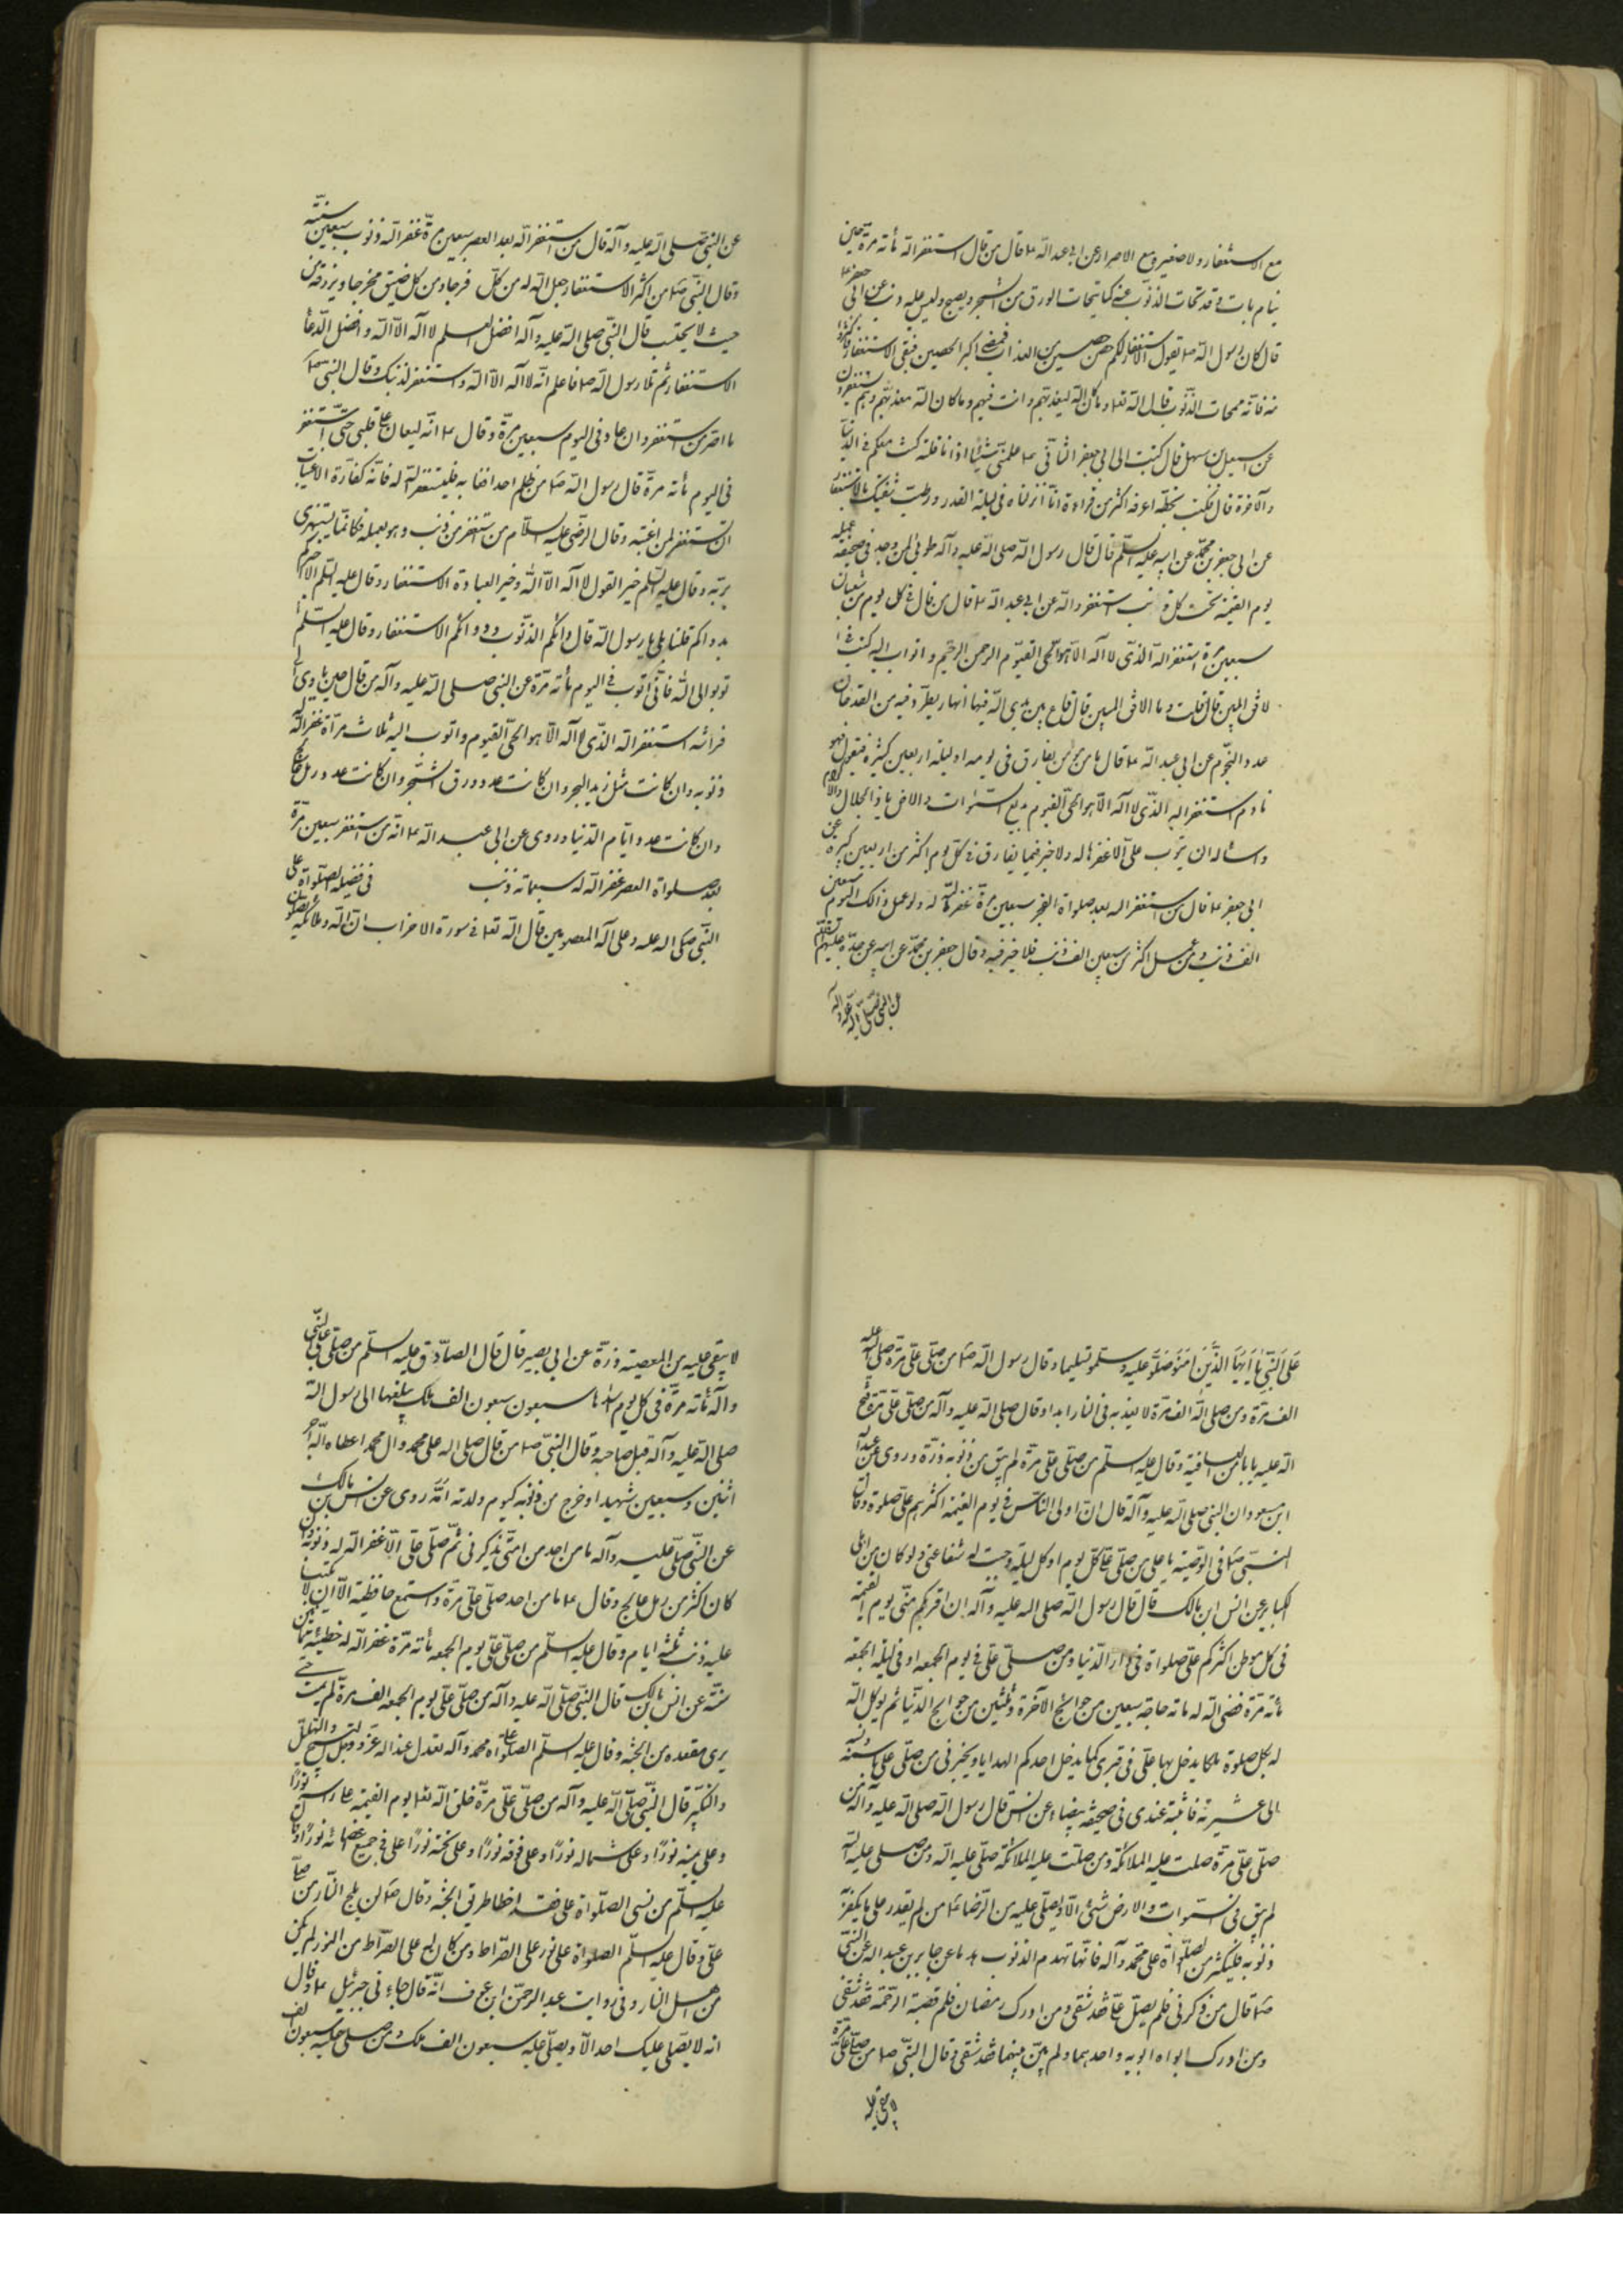 مع الاستغفار ولا صغير مع الاصرار عن ابي عبد الله ع قال من قال استغفر الله مأته مرة حين
ينام بات و قد تحات الذنوب عنه كما يتحات الورق من الشجر و يصبح وليس عليه ذنب عن ابي جعفر ع
قال كان رسول الله ص يقول الاستغفار لكم حصن حصين من العذاب فمضى اكبر الحصنين فبقي الاستغفار فاكثروا
منه فانه ممحات الذنوب قال الله تعا و ما كان الله ليعذبهم و انت فيهم و ما كان الله معذبهم و هم يستغفرون
عن اسمعيل بن سهل قال كتبت الى ابي جعفر الثاني ع علمني شيئا اذا انا قلته كنت معكم في الدنيا
و الآخرة قال فكتب بخطه اعرفه اكثر من قراءة انا انزلناه في ليلة القدر و رطب شفتيك بالاستغفار
عن ابي جعفر بن محمد عن ابيه عليه السلم قال قال رسول الله صلى الله عليه و آله طوبى لمن وجد في صحيفة عمله
يوم القيمة تحت كل ذنب استغفر الله عن ابي عبد الله ع قال من قال في كل يوم من شعبان
سبعين مرة استغفر الله الذي لا اله الا هو الحي القيوم الرحمن الرحيم و اتوب اليه كتب في ا
لافق المبين قال قلت و ما الافق المبين قال قاع بين يدي الله فيها انهار يطرد فيه من القدحان
عدد النجوم عن ابي عبد الله ع قال ما من مؤمن يقارف في يومه او ليلة اربعين كبيرة فيقول و هو
نادم استغفر الله الذي لا اله الا هو الحي القيوم بديع السموات و الارض يا ذا الجلال و الاكرام
و اسئله ان يتوب علي الا غفرها له و لا خير فيما يقارف في كل يوم اكثر من اربعين كبيرة عن
ابي جعفر ع قال من استغفر الله بعد صلواة الفجر سبعين مرة غفر الله له و لو عمل ذلك اليوم سبعين
الف ذنب و من عمل اكثر من سبعين الف ذنب فلا خير فيه و قال جعفر بن محمد عن ابيه عن جده عليهم السلم
عن النبي صلى الله عليه و آله
عن النبي صلى الله عليه و آله قال من استغفر الله بعد العصر سبعين مرة غفر الله ذنوب سبعين سنة
و قال النبي ص من اكثر الاستغفار جعل الله له من كل فرجا و من كل ضيق مخرجا و يرزقه من
حيث لا يحتسب قال النبي صلى الله عليه و آله افضل العلم لا اله الا الله و افضل الدعا
الاستغفار ثم تلا رسول الله ص فاعلم انه لا اله الا الله و استغفر لذنبك و قال النبي ص
ما اصر من استغفر و ان عاد في اليوم سبعين مرة و قال ع انه ليغان على قلبي حتى استغفر
في اليوم مأته مرة قال رسول الله ص من ظلم احدا فغابه فليستغفر الله له فانه كفارة الاغتياب
ان تستغفر لمن اغتبته و قال الرضي عليه السلام من استغفر من ذنب و هو يعمله فكانما يستهزي
بربه و قال عليه السلم خير القول لا اله الا الله و خير العبادة الاستغفار و قال عليه السلم الا اخبركم
بدوائكم قلنا بلى يا رسول الله قال دائكم الذنوب و دوائكم الاستغفار و قال عليه السلم
توبوا الى الله فاني اتوب في اليوم مأته مرة عن النبي صلى الله عليه و آله من قال حين ياوي الى
فراشه استغفر الله الذي لا اله الا هو الحي القيوم و اتوب اليه ثلاث مرات غفر الله له
ذنوبه و ان كانت مثل زبد البحر و ان كانت عدد ورق الشجر و ان كانت عدد رمل عالج
و ان كانت عدد ايام الدنيا و روي عن ابي عبد الله ع انه من استغفر سبعين مرة
بعد صلواة العصر غفر الله له سبعمائه ذنب في فضيلة الصلواة على
النبي صلى الله عليه و على آله المعصومين قال الله تعا في سورة الاحزاب ان الله و ملائكته يصلون
على النبي يا ايها الذين امنوا صلوا عليه و سلموا تسليما و قال رسول الله ص من صلى علي مرة صلى الله عليه
الف مرة و من صلى الله الف مرة لا يعذبه في النار ابدا و قال صلى الله عليه و آله من صلى علي مرة فتح
الله عليه بابا من العافية و قال عليه السلم من صلى علي مرة لم يبق من ذنوبه ذرة و روي عن عبد الله
ابن مسعود ان النبي صلى الله عليه و آله قال ان اولى الناس في يوم القيمة اكثرهم علي صلوة و قال
النبي ص في الوصية يا علي من صلى علي كل يوم او كل ليلة وجبت له شفاعتي و لو كان من اهل
الكبائر عن انس ابن مالك قال قال رسول الله صلى الله عليه و آله ان اقربكم مني يوم القيمة
في كل موطن اكثركم علي صلواة في دار الدنيا و من صلى علي في يوم الجمعه او في ليلة الجمعه
مأته مرة قضى الله له مأته حاجة سبعين من حوائج الآخرة و ثلثين من حوائج الدنيا ثم يوكل الله
له بكل صلوة ملكا يدخل بها علي في قبري كما يدخل احدكم الهدايا و يخبرني من صلى علي باسمه و نسبه
الى عشيرته فاثبته عندي في صحيفة بيضاء عن انس قال رسول الله صلى الله عليه و آله من
صلى علي مرة صلت عليه الملائكة و من صلت عليه الملائكة صلى عليه الله و من صلى عليه الله
لم يبق في السموات و الارض شيئ الا و يصلي عليه من الرضا ع من لم يقدر على ما يكفر
ذنوبه فليكثر من الصلواة على محمد و آله فانها تهدم الذنوب هدما عن جابر بن عبد الله عن النبي
ص قال من ذكرني فلم يصل علي فقد شقي و من ادرك رمضان فلم تصبه الرحمة فقد شقي
و من ادرك ابواه ابويه و احدهما و لم يبر بينهما فقد شقي و قال النبي ص من صلى علي مرة
لا يبقى عليه
لا يبقى عليه من المعصية ذرة عن ابي بصير قال قال الصادق عليه السلم من صلى على النبي
و آله مأته مرة في كل يوم سبعون الف ملك يبلغها الى رسول الله
صلى الله عليه و آله قبل صاحبه و قال النبي ص من قال صلى الله على محمد و آل محمد اعطاه الله اجر
اثنين و سبعين شهيدا و خرج من ذنوبه كيوم ولدته امه روي عن انس بن مالك
عن النبي صلى عليه و آله ما من احد من امتي يذكرني ثم صلى علي الا غفر الله له ذنوبه و ان
كان اكثر من رمل عالج و قال ع ما من احد صلى علي مرة و اسمع حافظيه الا ان لا يكتبا
عليه ذنب ثلثة ايام و قال عليه السلم من صلى علي يوم الجمعه مأته مرة غفر الله له خطيئة ثمانين
سنة عن انس بن مالك قال النبي صلى الله عليه و آله من صلى علي يوم الجمعه الف مرة لم يمت حتى
يرى مقعده من الجنة و قال عليه السلم الصلواة على محمد و آله تعدل عند الله عز و جل التسبيح و التهليل
و التكبير قال النبي صلى الله عليه و آله من صلى علي مرة خلق الله تعا يوم القيمة على راسه نورا
و على يمينه نورا و على شماله نورا و على فوقه نورا و على تحته نورا على في جميع اعضائه نورا و قال
عليه السلم من نسي الصلواة علي فقد اخطا طريق الجنة و قال ص لن يلج النار من صلى
علي و قال عليه السلم الصلواة علي نور على الصراط و من كان له على الصراط من النور لم يكن
من اهل النار و في روايت عبد الرحمن ابن عوف انه قال جاءني جبرئيل ع و قال
انه لا يصلي عليك احد الا و يصلي عليه سبعون الف ملك و من صلى عليه سبعون الف